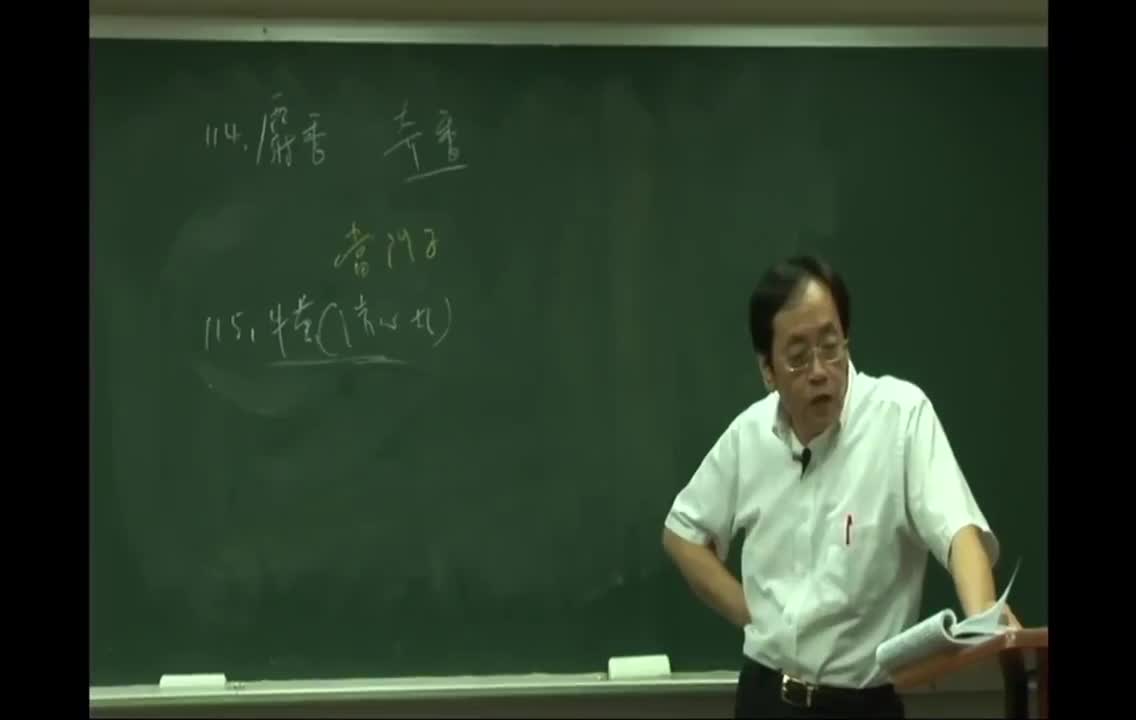 114. 麝香 寺香
當门子
115. 牛黃(清心丸)